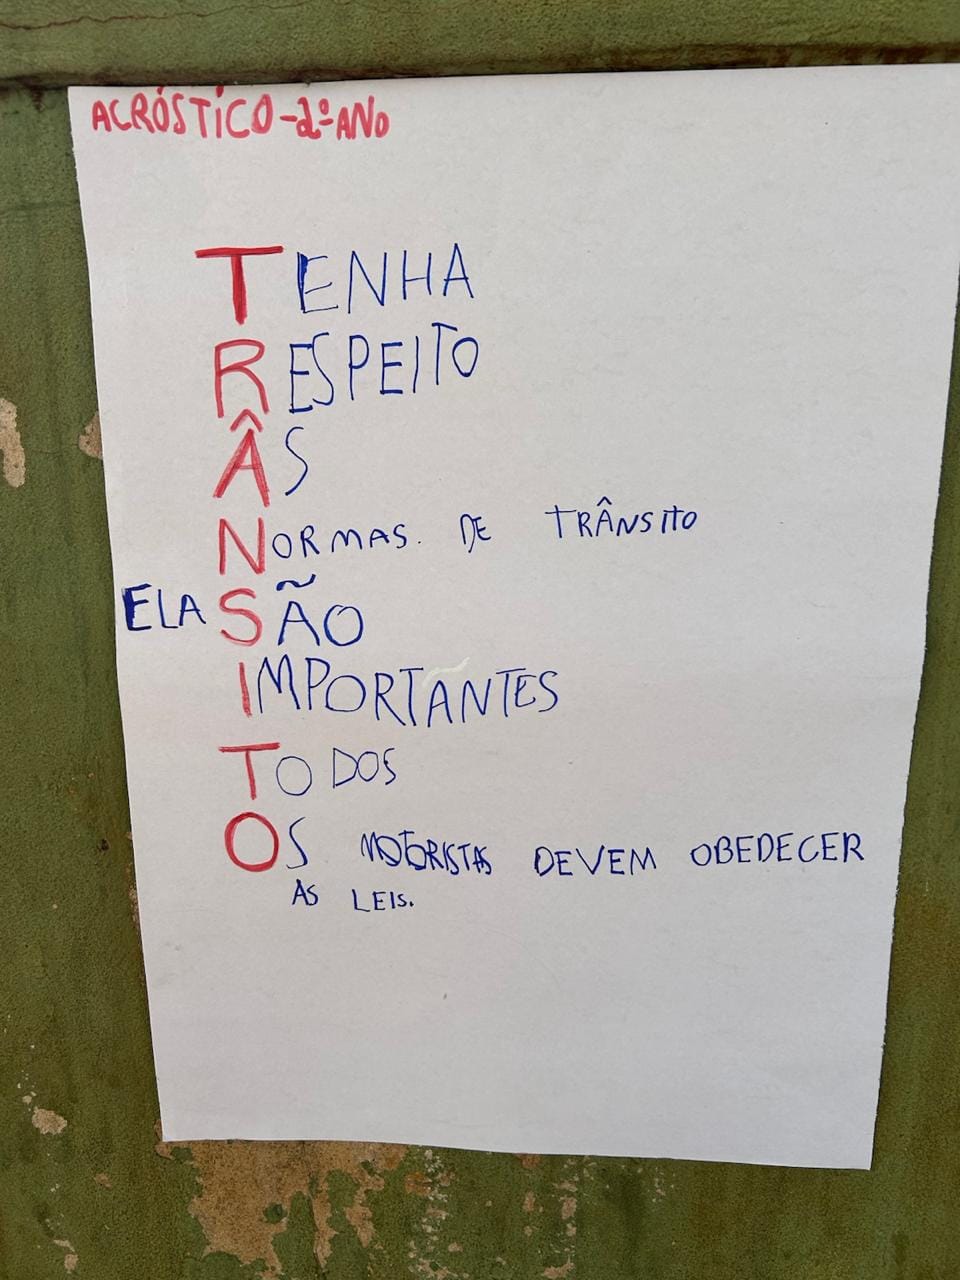 ACRÓSTICO - 2º ANO
TENHA
RESPEITO
ÂS
NORMAS. DE TRÂNSITO
ELA SÃO
IMPORTANTES
TODOS
OS MOTORISTAS DEVEM OBEDECER
AS LEIS.